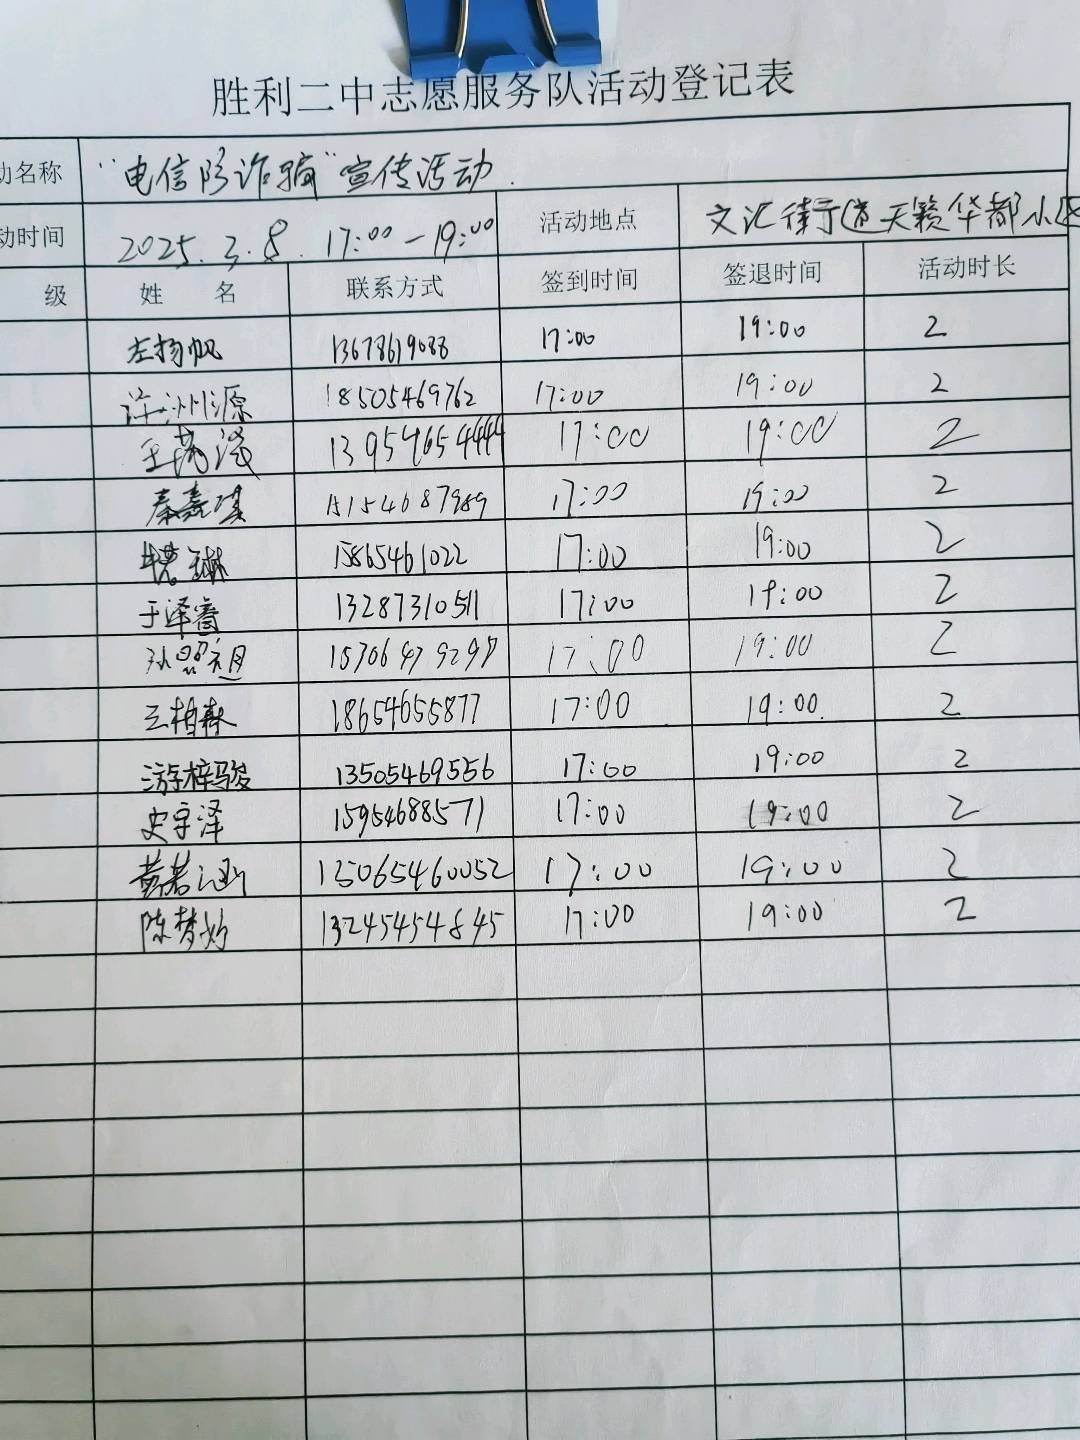 胜利二中志愿服务队活动登记表
动名称 “电信防诈骗”宣传活动
动时间 2025.3.8. 17:00-19:00 活动地点 文汇街道天籁华都小区
级 姓 名 联系方式 签到时间 签退时间 活动时长
左扬帆 13678619088 17:00 19:00 2
许洲源 18505469762 17:00 19:00 2
17:00 19:00 2
秦嘉琪 15154687989 17:00 19:00 2
琳 15865461022 17:00 19:00 2
于泽睿 13287310511 17:00 19:00 2
17:00 19:00 2
王柏森 18654655877 17:00 19:00 2
游梓骏 13505469556 17:00 19:00 2
史宇泽 15954688571 17:00 19:00 2
黄若涵 135065460052 17:00 19:00 2
陈梦妤 13245454845 17:00 19:00 2